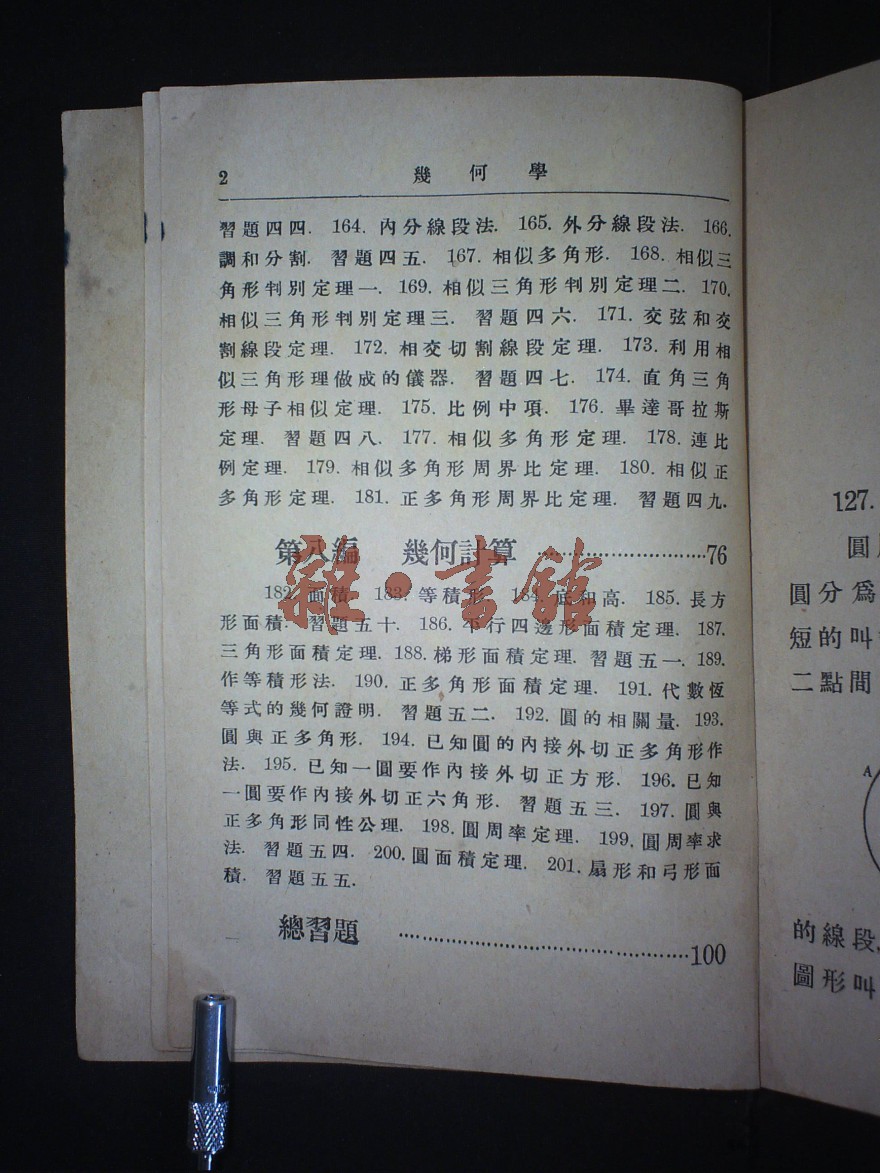 2
幾何學
習題四四. 164. 內分線段法. 165. 外分線段法. 166.
調和分割. 習題四五. 167. 相似多角形. 168. 相似三
角形判別定理一. 169. 相似三角形判別定理二. 170.
相似三角形判別定理三. 習題四六. 171. 交弦和交
割線段定理. 172. 相交切割線段定理. 173. 利用相
似三角形理做成的儀器. 習題四七. 174. 直角三角
形母子相似定理. 175. 比例中項. 176. 畢達哥拉斯
定理. 習題四八. 177. 相似多角形定理. 178. 連比
例定理. 179. 相似多角形周界比定理. 180. 相似正
多角形定理. 181. 正多角形周界比定理. 習題四九.
第八編 幾何計算 ........................... 76
182. 面積. 183. 等積形. 184. 底和高. 185. 長方
形面積. 習題五十. 186. 平行四邊形面積定理. 187.
三角形面積定理. 188. 梯形面積定理. 習題五一. 189.
作等積形法. 190. 正多角形面積定理. 191. 代數恆
等式的幾何證明. 習題五二. 192. 圓的相關量. 193.
圓與正多角形. 194. 已知圓的內接外切正多角形作
法. 195. 已知一圓要作內接外切正方形. 196. 已知
一圓要作內接外切正六角形. 習題五三. 197. 圓與
正多角形同性公理. 198. 圓周率定理. 199. 圓周率求
法. 習題五四. 200. 圓面積定理. 201. 扇形和弓形面
積. 習題五五.
總習題 ........................................ 100
雜·書館
127.
圓
圓分爲
短的叫
二點間
A
的線段
圖形叫